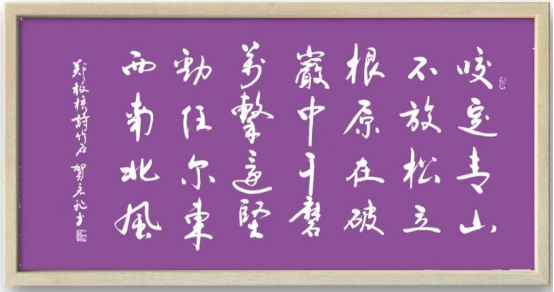 咬定青山
不放松立
根原在破
巖中千磨
萬擊還堅
勁任尔東
西南北風
郑板橋詩竹石 賀